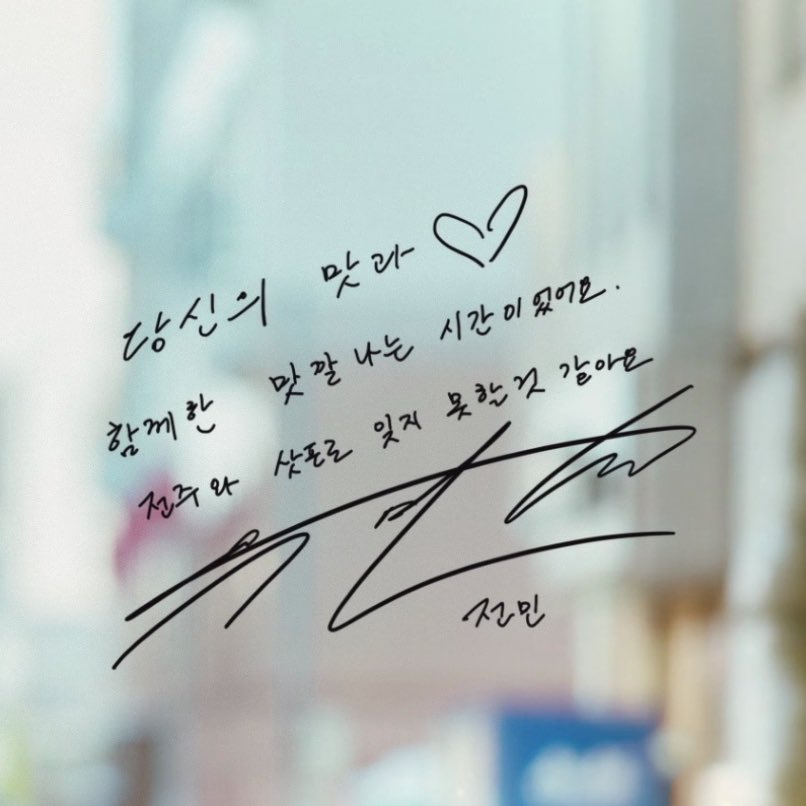 당신의 맛과
함께한 맛깔나는 시간이었어요.
전주와 삿포로 잊지 못할것 같아요
전민